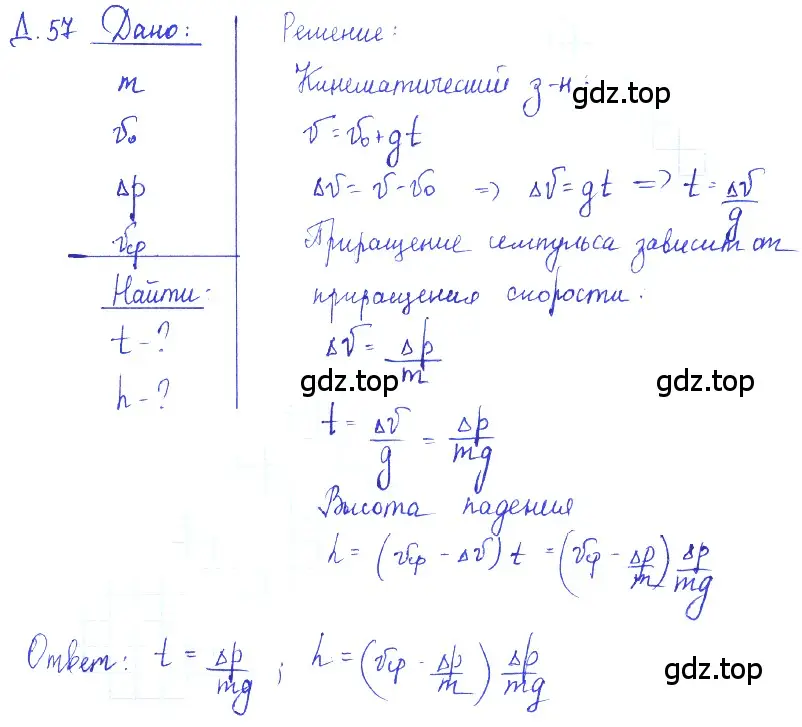 Д. 57 Дано: Решение:
m Кинематический з-н:
gdz.top
v₀ v = v₀ + gt
Δp Δv = v - v₀ => Δv = gt => t = Δv/g
vср Приращение импульса зависит от
Найти: приращения скорости.
t - ? Δv = Δp/m
gdz.top gdz.top
h - ?
t = Δv/g = Δp/mg
Высота падения
h = (vср - Δv) t = (vср - Δp/m) Δp/mg
Ответ: t = Δp/mg ; h = (vср - Δp/m) Δp/mg
gdz.top